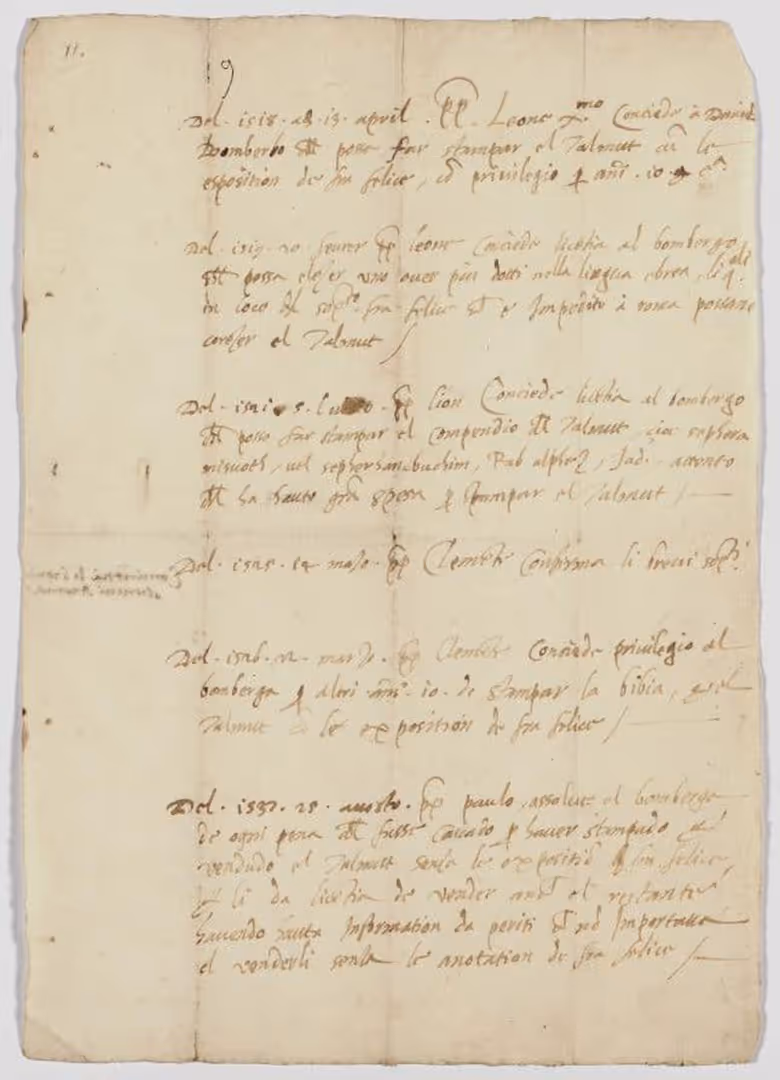 11.
9
Del. 1518. ad. 13. april. pp. Leone x.mo Conciede à Daniel
Bomberbo posse far stampar el Talmut cū le
esposition de fra felice, cō privilegio p anī. 10.
Del. 1519. 20. fevrer pp leone Conciede licētia al bombergo
possa elezer uno over piu dotti nella lingua ebrea, liqāli
in loco del sopto. fra felice e Impedito à roma possano
corezer el Talmut /
Del. 1521. 5. pp lion Conciede licētia al bombergo
posse far stampar el Compendio del Talmut, cioè sephora
misuoth, vel sephersanibuchim, Rab alphez, Jad.
ha hauto grā spesa p stampar el Talmut /
Del. 1525. 14 mazo. pp Clemēte Confirma li brevi sopti.
Del. 1526. 22. marzo. pp Clemēte Conciede privilegio al
bombergo p altri anī. 10. de stampar la bibia, et el
Talmut cō le exposition de fra felice /
Del. 1537. 25. auosto. pp paulo, assolve el bombergo
de ogni pena fusse Cascado p haver stampado et
vendudo el Talmut senza le expositiō de fra felice,
et li da licētia de vender el restante
havendo hauta Information da periti nō Importava
el venderli senza le anotation de fra felice /